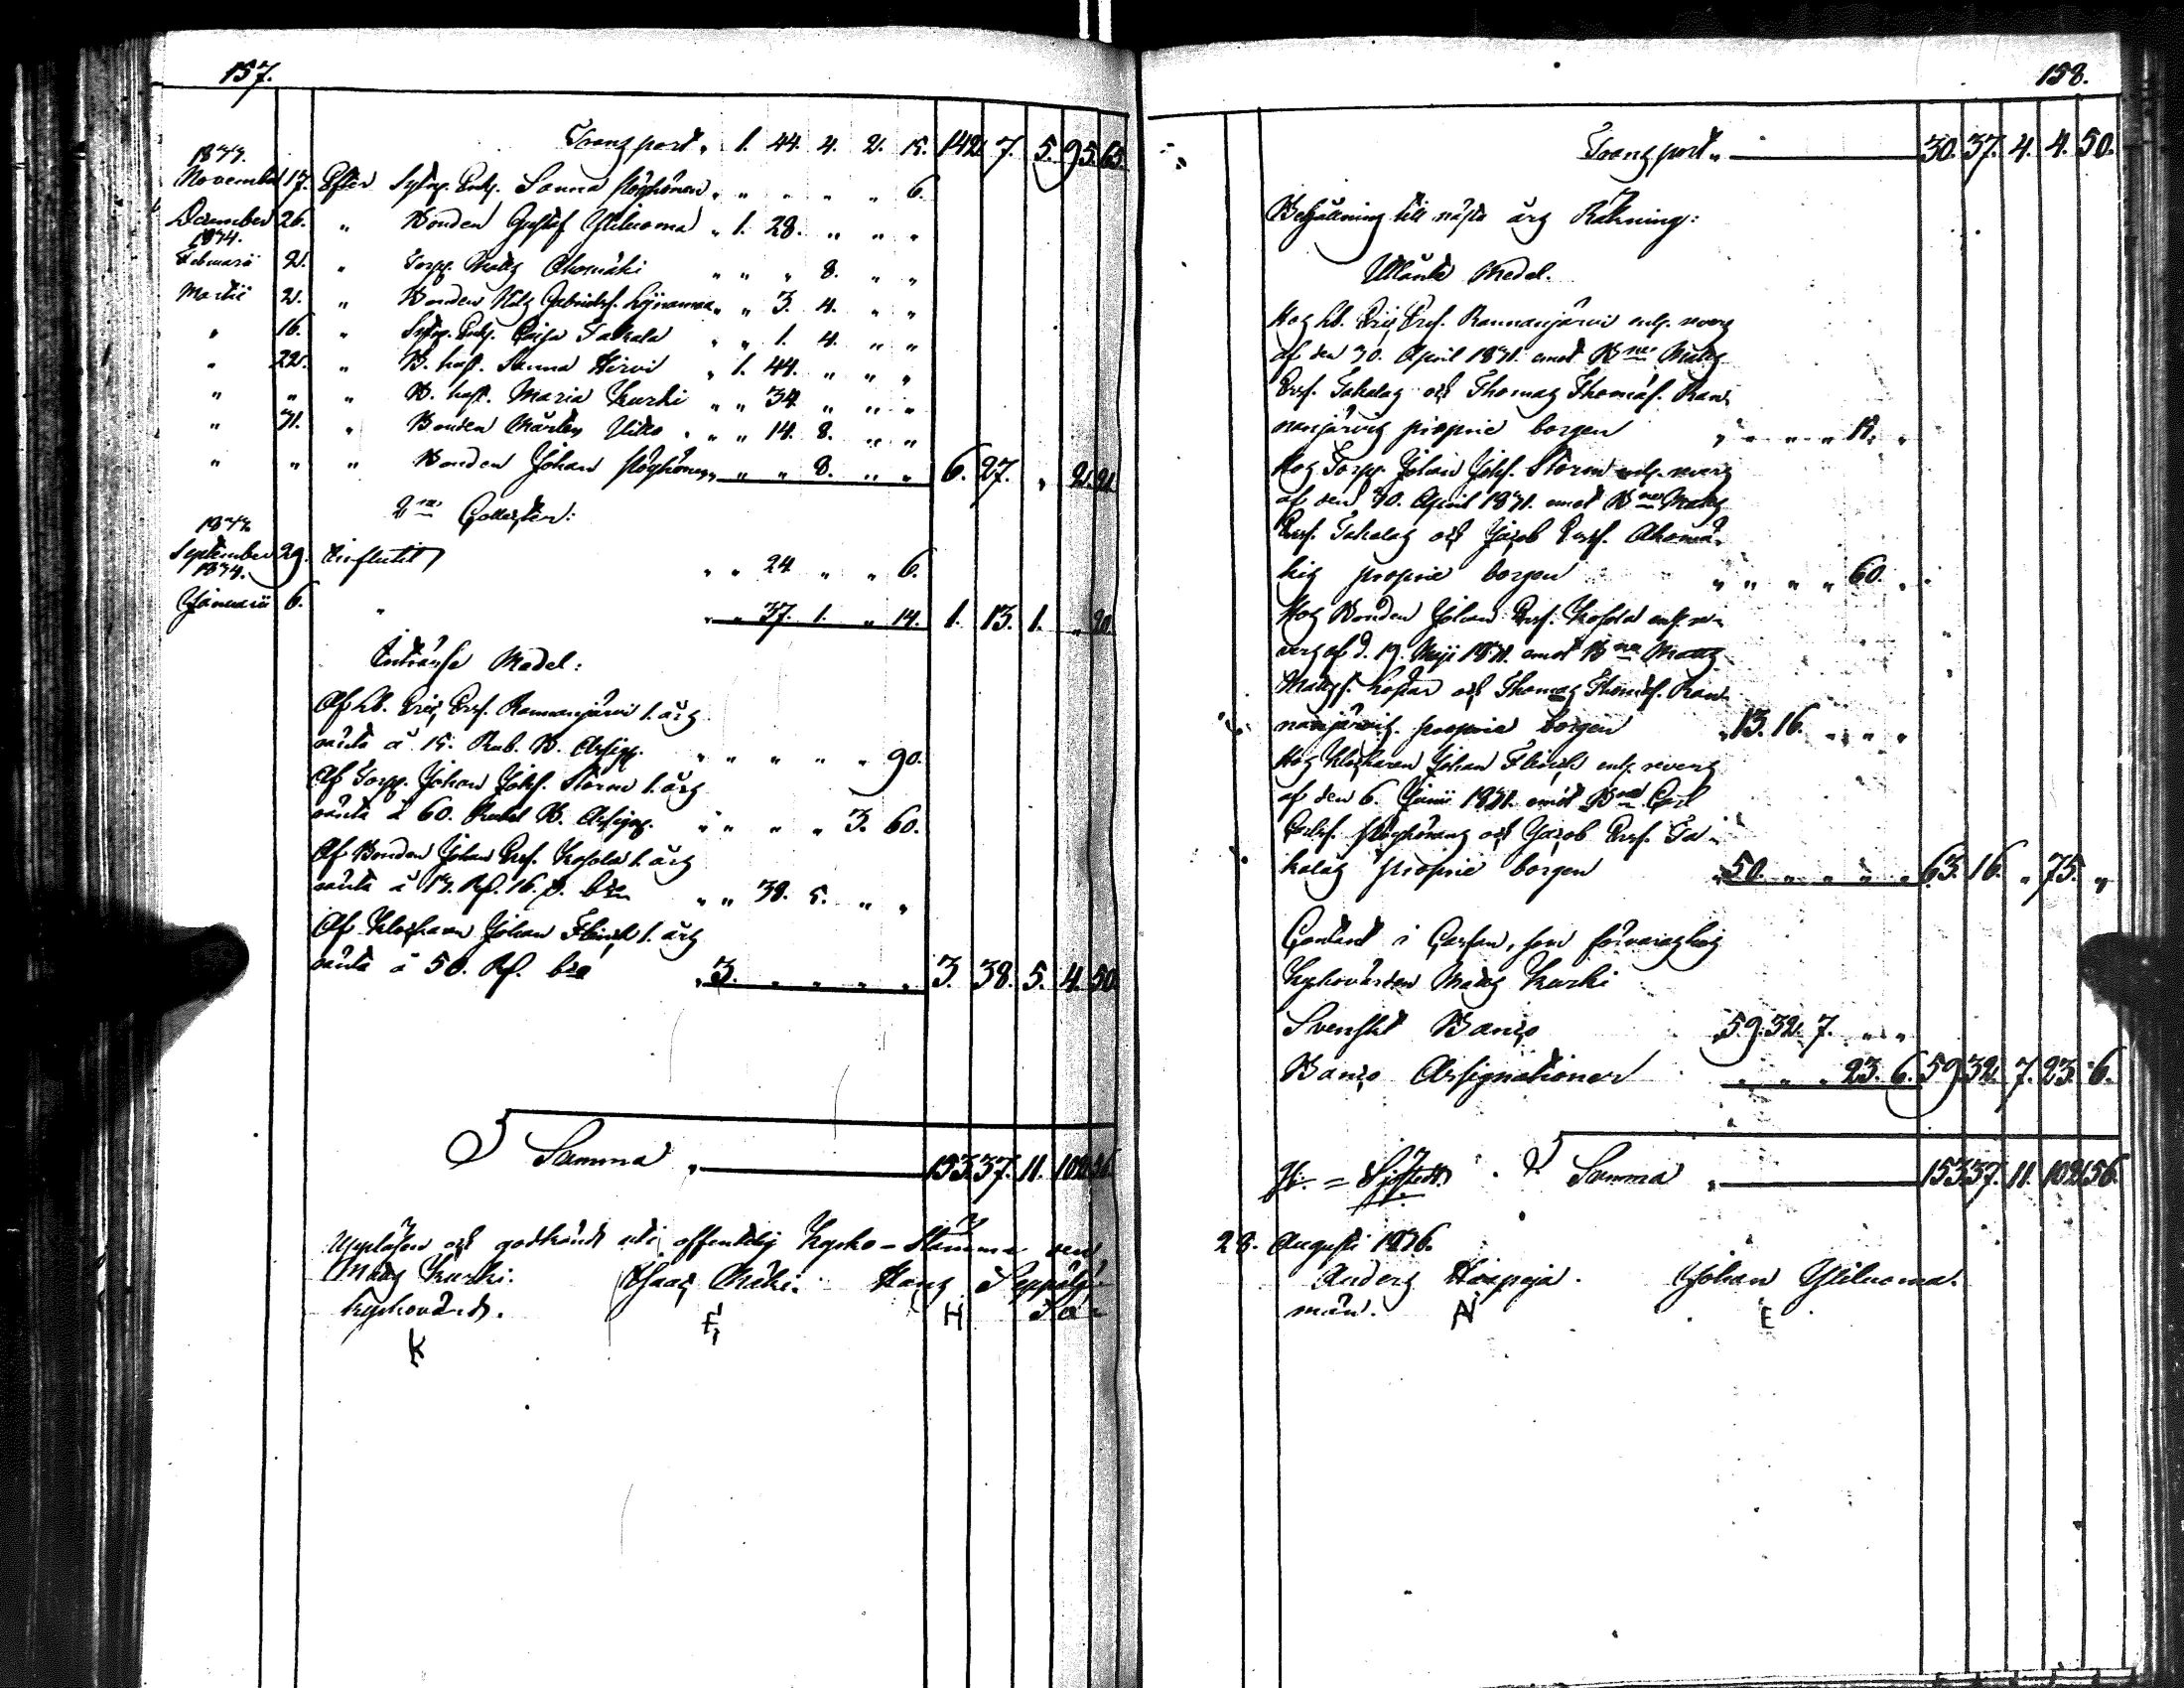 157.
Transport „ 1. 44. 4. 2. 15. 142. 7. 5. 95. 65.
1833.
November 17. Efter Sytn. Enk. Sanna „ „ „ „ „ 6.
December 26. „ Bonden Gustaf Yliluoma „ 1. 28. „ „ „
1834.
Februarii 2. „ Torp. Matts Ahomäki „ „ „ 8. „ „
Martii 2. „ Bonden Matts Gabrielss. „ „ 3. 4. „ „
„ 16. „ Sytn. Enk. Caisa Takala „ „ 1. 4. „ „
„ 22. „ B. hust. Sanna Hirvi „ 1. 44. „ „ „
„ „ „ B. hust. Maria Kurki „ „ 34. „ „ „
„ 31. „ Bonden Mårten „ „ 14. 8. „ „
„ „ „ Bonden Johan „ „ „ 8. „ „ 6. 27. „ 2. 21.
2ne Collecter:
1833.
September 29. Influtit „ „ 24. „ „ 6.
1834.
Januarii 6. „ „ „ 37. 1. „ 14. 1. 13. 1. „ 20.
Intränse Medel:
Af Lb. Eric Ersf. Rannanjärvi 1. års
ränta à 15. Rub. B. Assign. „ „ „ „ „ 90.
Af Torp. Johan Johsf. Storm 1. års
ränta à 60. Rubel B. Assign. „ „ „ „ 3. 60.
Af Bonden Johan Ersf. Kosola 1. års
ränta à 13. Rd. 16. s. bco „ „ 38. 5. „ „
Af Klockaren Johan Flinck 1. års
ränta à 50. Rd. bco „ 3. „ „ „ „ „ 3. 38. 5. 4. 50.
Summa „ 153. 37. 11. 102. 56.
Uppläsen och godkänd uti offentelig Kyrko-Stämma den
Matts Kurki. Isaac Mäki. Hans Seppälä
Kyrkovärd. Sex-
K H
158.
Transport „ 30. 37. 4. 4. 50.
Behållning till nästa års Räkning:
Utlånte Medel.
Hos Lb. Eric Ersf. Rannanjärvi enl. revers
af den 30. April 1831. emot Bne Matts
Ersf. Takalas och Thomas Thomæs. Ran-
nanjärvis proprie borgen „ „ „ „ 15. „
Hos Torp. Johan Johsf. Storm enl. revers
af den 30. April 1831. emot Bne Matts
Ersf. Takalas och Jacob Ersf. Ahomä-
kis proprie borgen „ „ „ „ 60. „
Hos Bonden Johan Ersf. Kosola enl. re-
vers af d. 19. Maji 1831. emot Bne Matts
Mattsf. och Thomas Thomæs. Ran-
nanjärvis proprie borgen „ 13. 16. „ „ „
Hos Klockaren Johan Flinck enl. revers
af den 6. Junii 1831. emot Bne Carl
Carlsf. och Jacob Ersf. Ta-
kalas proprie borgen „ 50. „ „ „ „ 63. 16. „ 75. „
Contant i Cassan, som förvaras hos
Kyrkovärden Matts Kurki
Svenskt Banco „ 59. 32. 7. „ „
Banco Assignationer „ „ „ 23. 6. 59. 32. 7. 23. 6.
Summa „ 153. 37. 11. 102. 56.
28. Augusti 1836.
Anders Haapoja. Johan Yliluoma.
män. N E